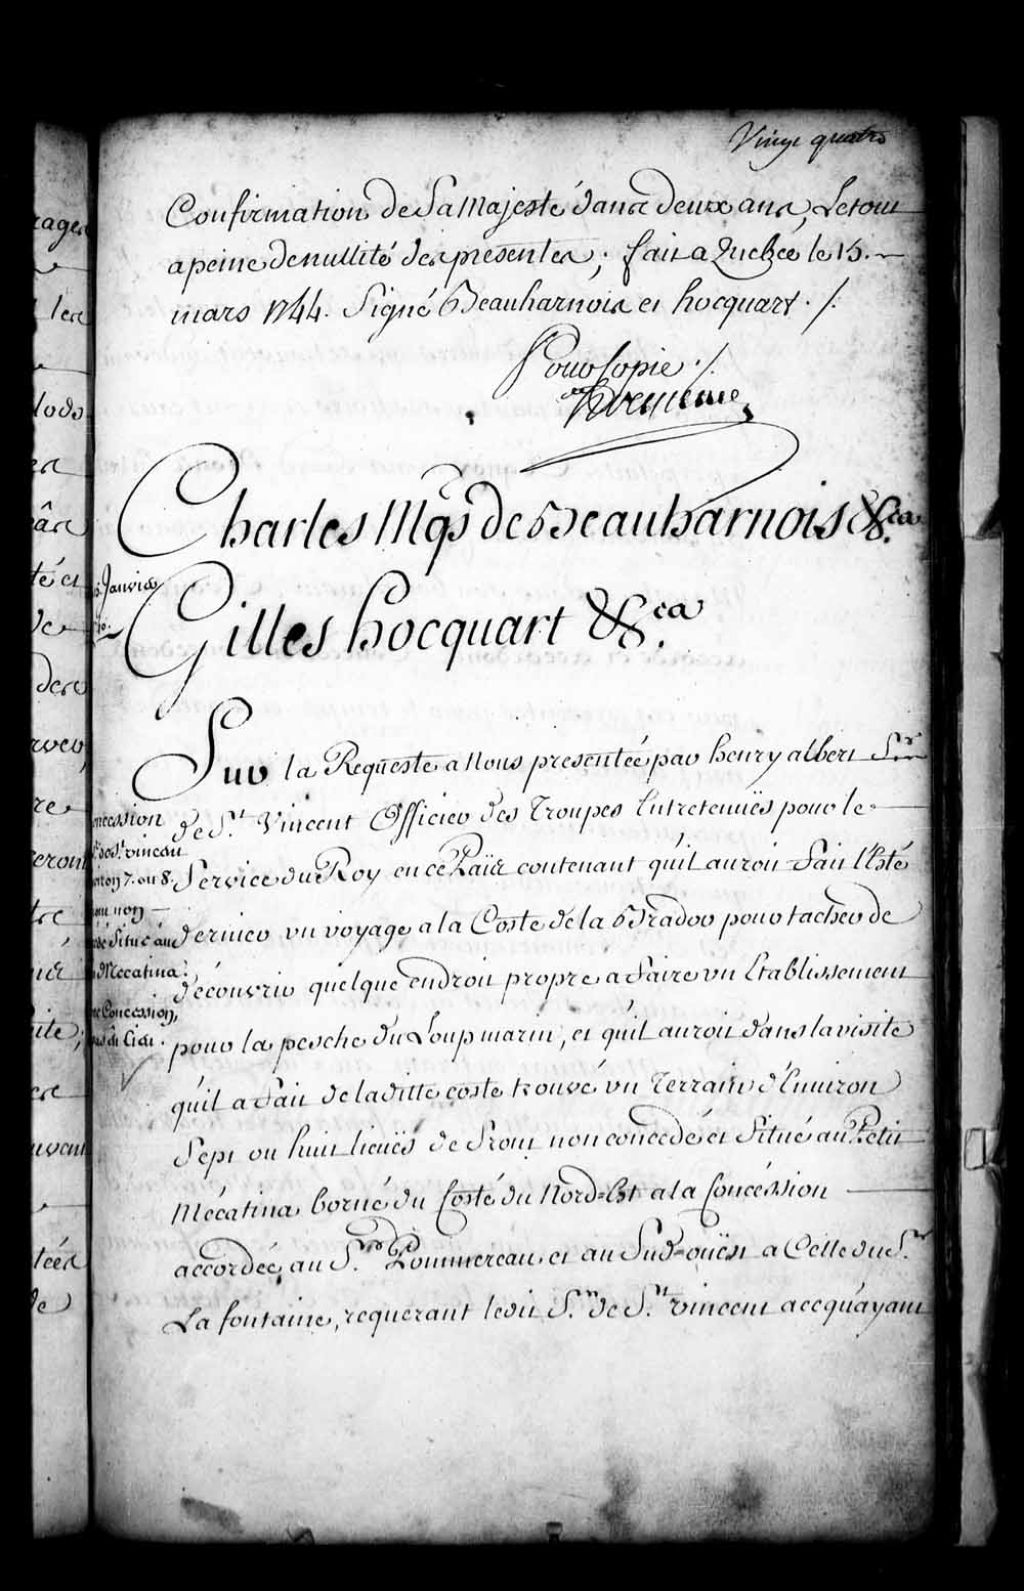 Vingt quatre
Confirmation de Sa Majesté dans deux ans, Le tout
a peine de nullité des presentes; fait a Quebec le 15.
mars 1744. Signé Beauharnois et hocquart ./.
Pour Copie ./.
Charles Mqs de Beauharnois &ca.
Janvier
Gilles hocquart &ca.
Sur la Requeste a Nous presentée par henry albert Sr
de St. Vincent Officier des Troupes Entretenuës pour le
Service du Roy en ce Païs contenant qu'il auroit fait l'Esté
dernier un voyage a la Coste de la Brador pour tacher de
découvrir quelque endroit propre a faire un Etablissement
pour la pesche du Loup marin, et qu'il auroit dans la visite
qu'il a fait de la ditte coste trouvé un Terrain d'Environ
Sept ou huit lieuës de front non concedé et Situé au Petit
Mécatina borné du Costé du Nord=Est a la Concéssion
accordée au Sr. Pommereau et au Sud=ouëst a Celle du Sr.
La fontaine, requerant ledit Sr. de St. vincent acequ'ayant
ncession
de St. vincent
iron 7. ou 8.
non
Situé au
Mecatina.
Concession,
rages
les
lods
es
té et
de
des
re
eront
tre
uvent
tées
de